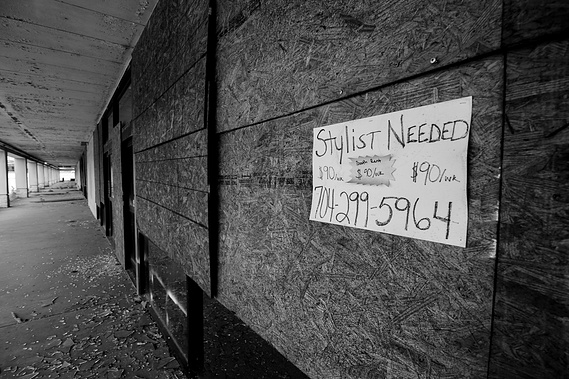 Stylist Needed
$90/wk $90/wk $90/wk
704-299-5964